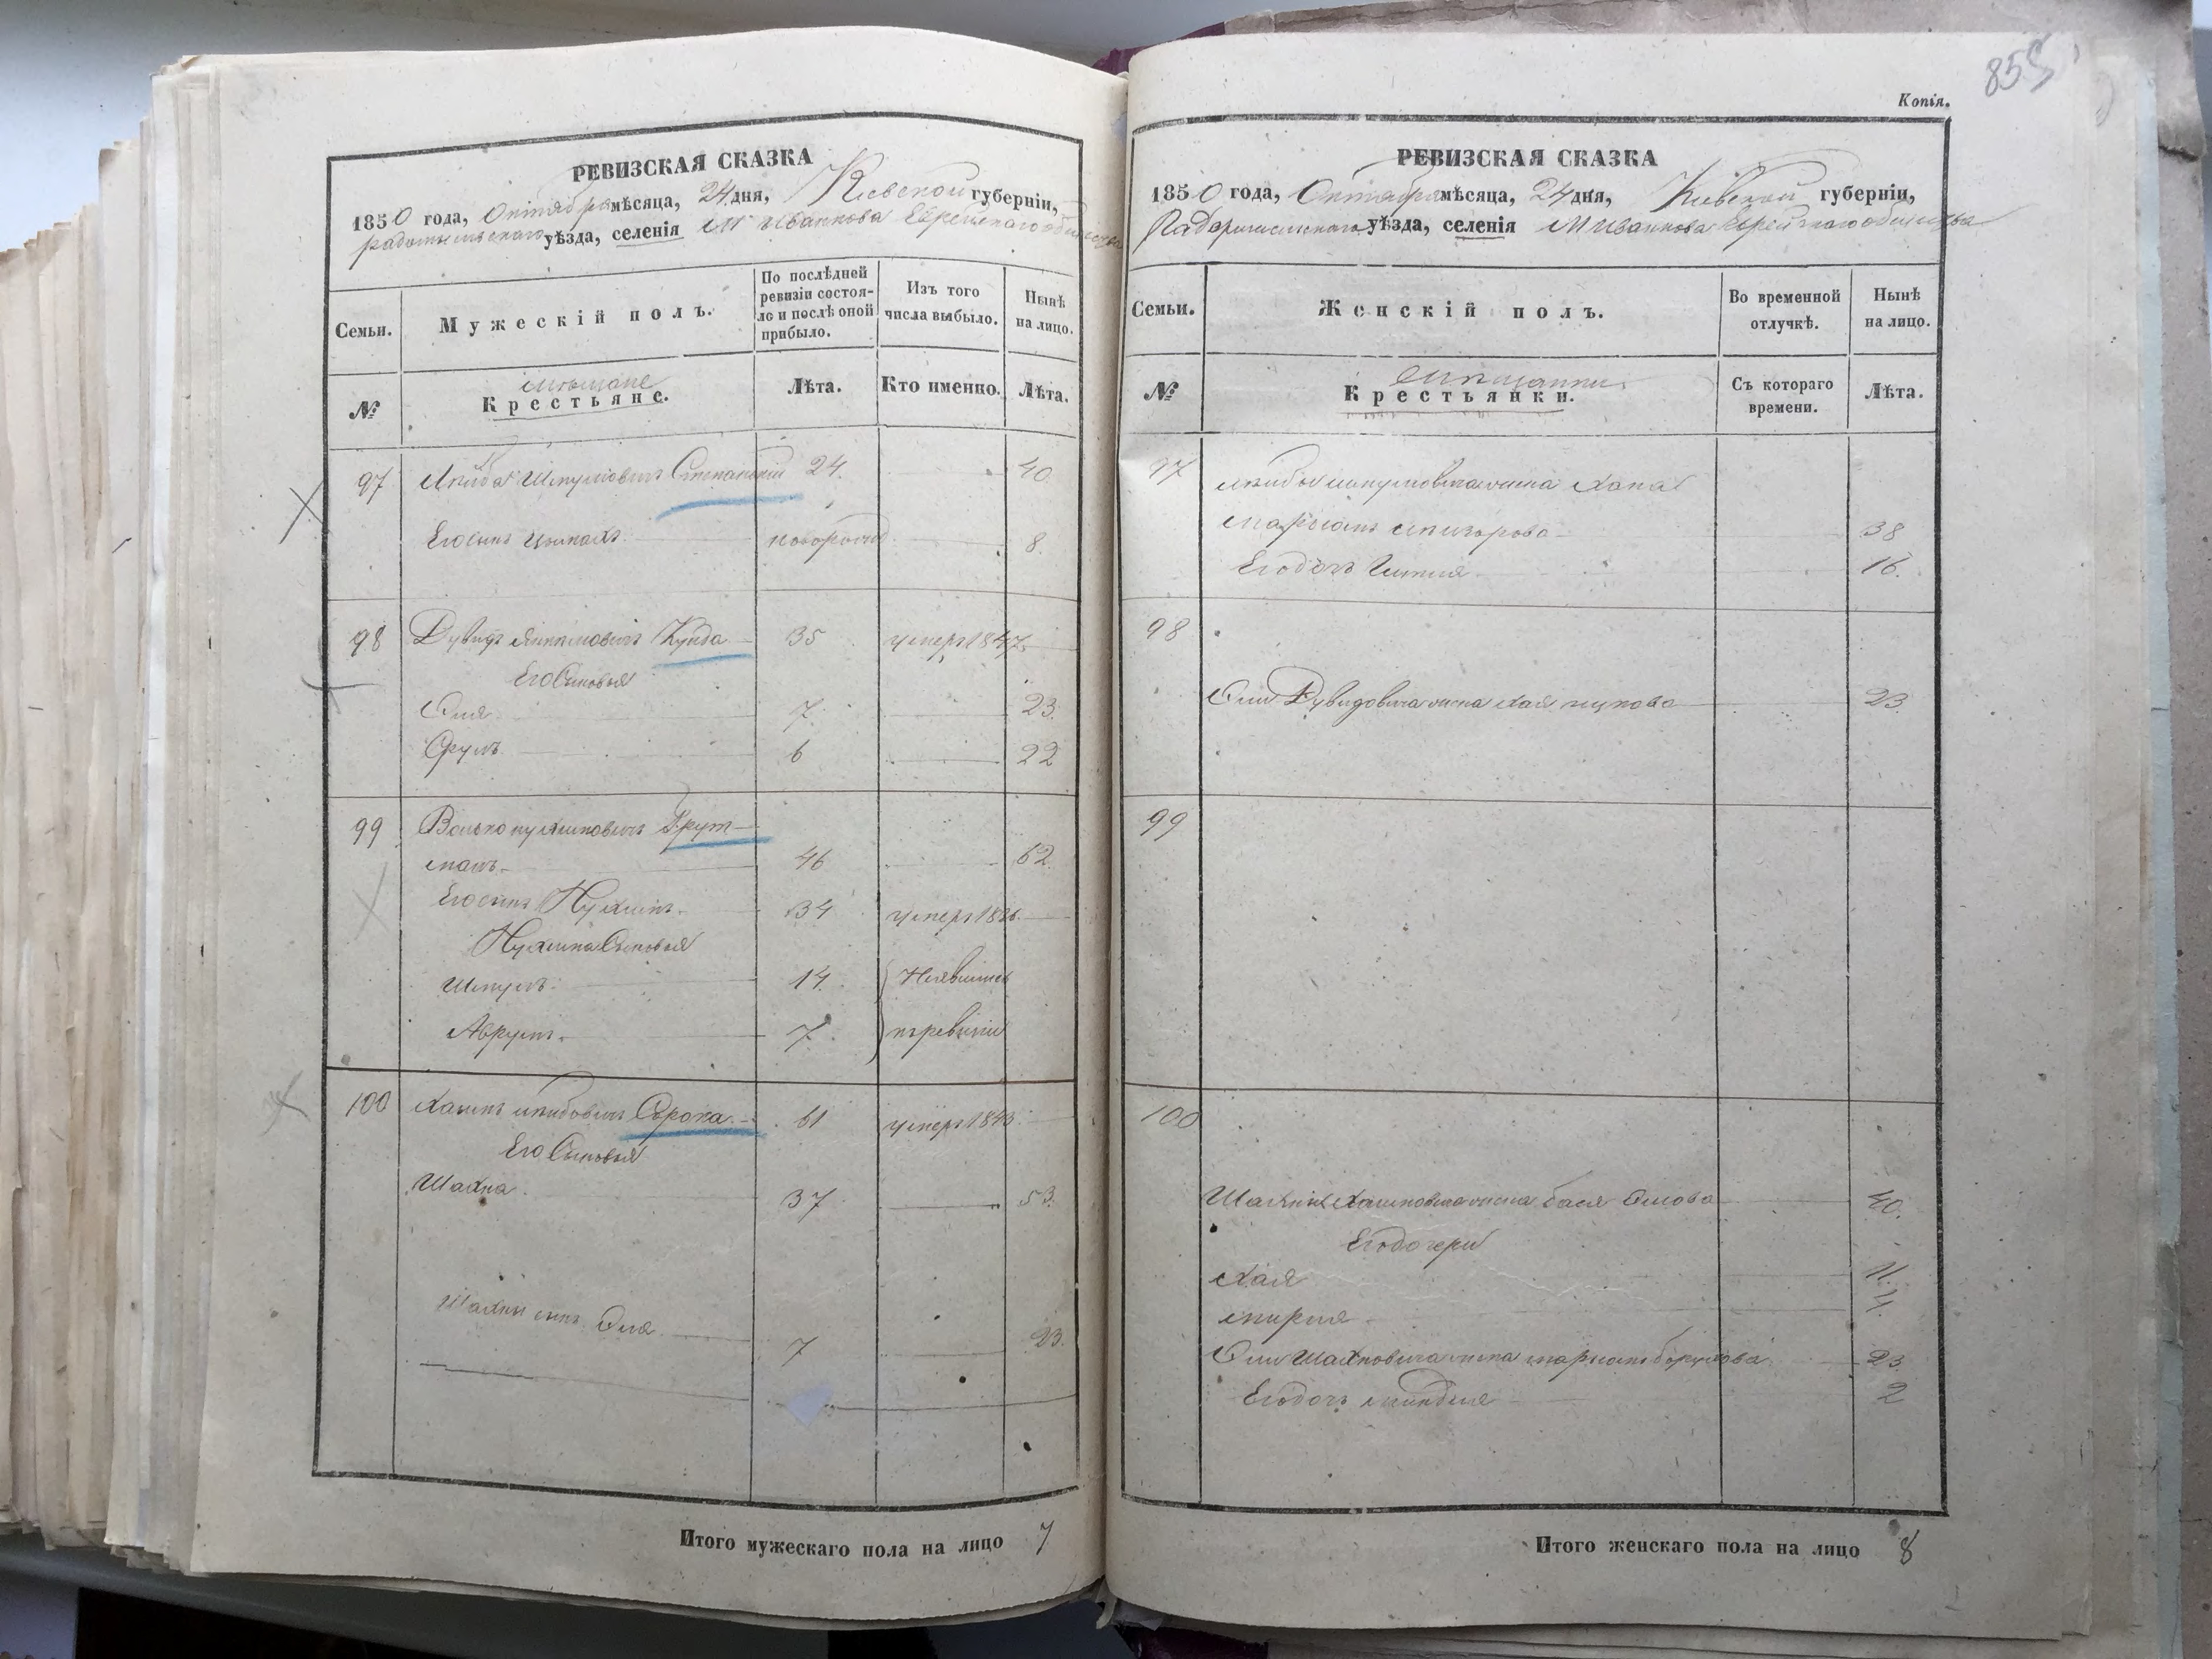 РЕВИЗСКАЯ СКАЗКА
1850 года, Октября мѣсяца, 24 дня, Кіевской губерніи,
радомысльскаго уѣзда, селенія М Иванкова Еврейскаго общества
Семьи.
Мужескій полъ.
По послѣдней
ревизіи состоя-
ло и послѣ оной
прибыло.
Изъ того
числа выбыло.
Нынѣ
на лицо.
№
мѣщане
Крестьяне.
Лѣта.
Кто именно.
Лѣта.
97 Лейба Шмулiовичъ Степанскій 24 40
Его сынъ новорожд 8.
98 Дувидъ Янкелiовичъ Кунда 35 умеръ 1847.
Его Сыновья
Эля 7. 23.
Срулъ 6 22
99 Волько нухимовичъ Трут-
манъ 46 62.
Его сынъ Нухимъ 34 умеръ
Нухима Сыновья
Шмулъ. 14. Неявились
Аврумъ. 7. къ ревизіи
100 Хаимъ лейбовичъ Сорока 61 умеръ 1843.
Его Сыновья
Шахна. 37 53.
Шахны сынъ Эля 7 23.
Итого мужескаго пола на лицо 7
855
Копія.
РЕВИЗСКАЯ СКАЗКА
1850 года, Октября мѣсяца, 24 дня, Кіевской губерніи,
Радомысльскаго уѣзда, селенія М Иванкова Еврейскаго общества
Семьи.
Женскій полъ.
Во временной
отлучкѣ.
Нынѣ
на лицо.
№
мѣщанки
Крестьянки.
Съ котораго
времени.
Лѣта.
97 Лейбы Шмулiовича жена Хана
38
Его дочь 16.
98
Эли Дувидовича жена хая 23.
99
100
Шахны Хаимовича жена бася Элiова 40.
Его дочери
Хая 11.
4.
Эли Шахновича жена марьямъ борухова 23.
Его дочь миндля 2
Итого женскаго пола на лицо 8